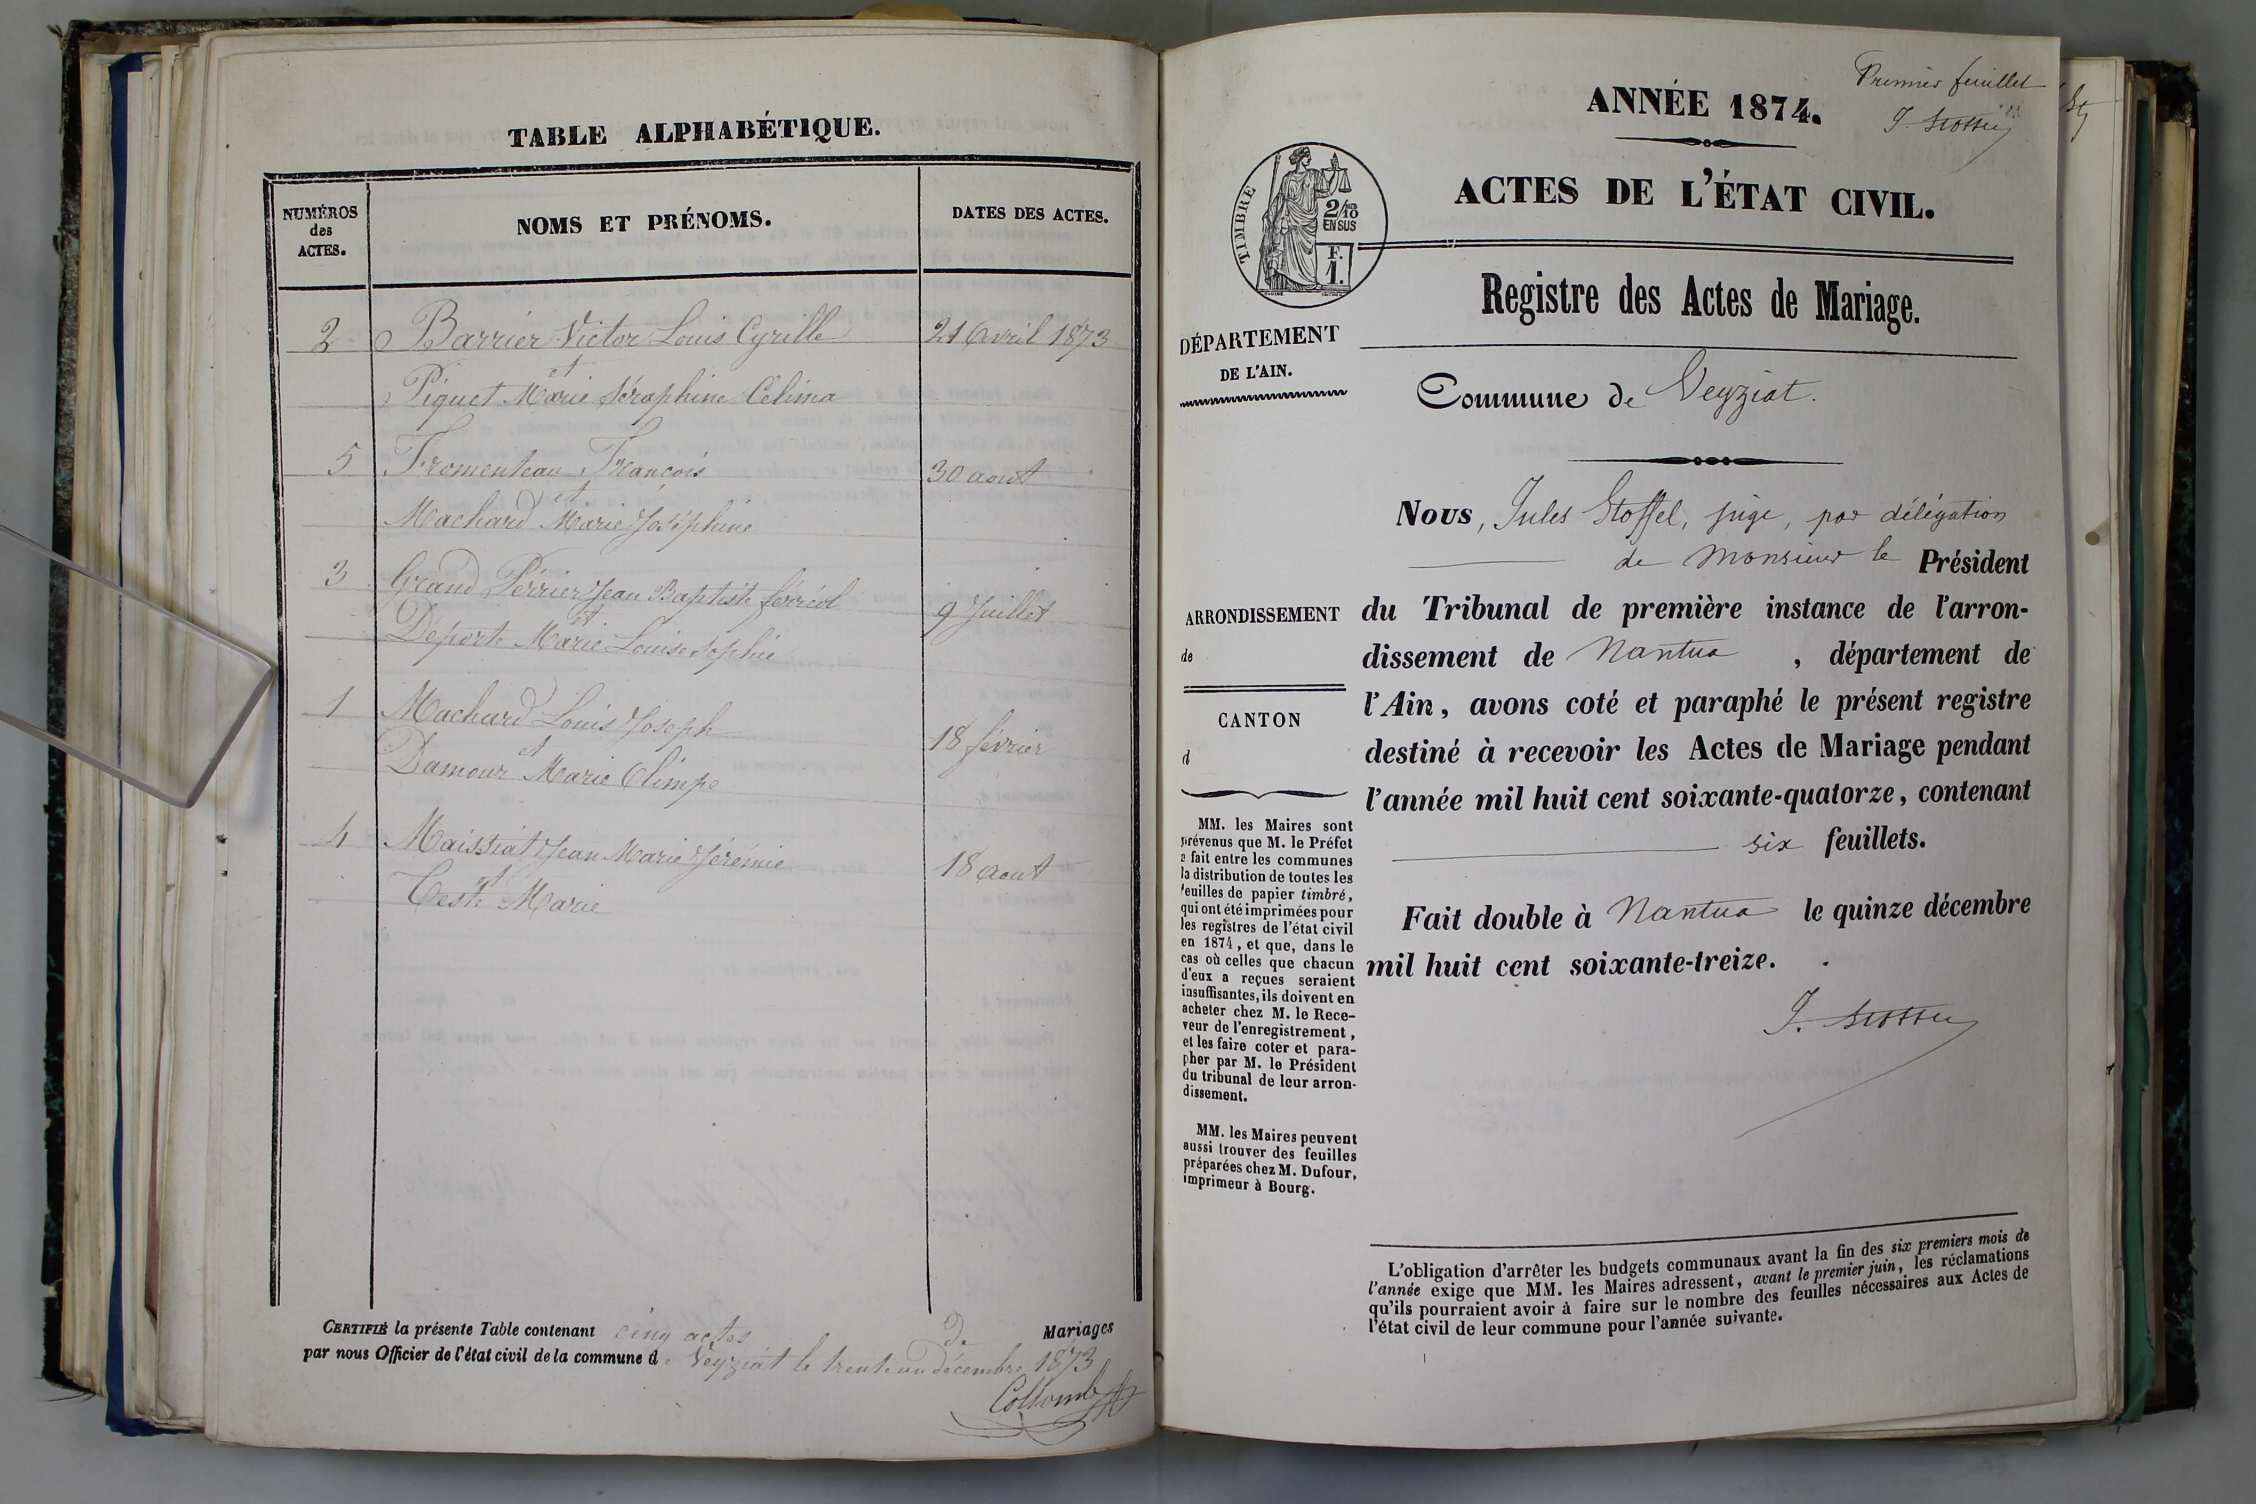 TABLE ALPHABÉTIQUE.
NUMÉROS
des
ACTES.
NOMS ET PRÉNOMS.
DATES DES ACTES.
2 Barrier Victor Louis Cyrille 21 Avril 1873
et
Piquet Marie Séraphine Célima
5 Fromenteau François 30 aout
et
Machard Marie Joséphine
3 Grand Perrier Jean Baptiste ferréol 9 Juillet
et
Déporte Marie Louise Sophie
1 Machard Louis Joseph 18 février
et
Damour Marie Olimpe
4 Maissiat Jean Marie Jérémie 18 aout
et
Teste Marie
CERTIFIÉ la présente Table contenant cinq actes de Mariages
par nous Officier de l'état civil de la commune d e Veyziat le trente un décembre 1873
Collomb
Premier feuillet
J. Stoffel
ANNÉE 1874.
ACTES DE L'ÉTAT CIVIL.
TIMBRE
2/10
EN SUS
F.
1.
Registre des Actes de Mariage.
DÉPARTEMENT
DE L'AIN.
Commune de Veyziat.
Nous, Jules Stoffel, juge, par délégation
de Monsieur le Président
du Tribunal de première instance de l'arron-
dissement de Nantua , département de
l'Ain, avons coté et paraphé le présent registre
destiné à recevoir les Actes de Mariage pendant
l'année mil huit cent soixante-quatorze, contenant
six feuillets.
Fait double à Nantua le quinze décembre
mil huit cent soixante-treize.
J. Stoffel
ARRONDISSEMENT
de
CANTON
d
MM. les Maires sont
prévenus que M. le Préfet
a fait entre les communes
la distribution de toutes les
feuilles de papier timbré,
qui ont été imprimées pour
les registres de l'état civil
en 1874, et que, dans le
cas où celles que chacun
d'eux a reçues seraient
insuffisantes, ils doivent en
acheter chez M. le Rece-
veur de l'enregistrement,
et les faire coter et para-
pher par M. le Président
du tribunal de leur arron-
dissement.
MM. les Maires peuvent
aussi trouver des feuilles
préparées chez M. Dufour,
imprimeur à Bourg.
L'obligation d'arrêter les budgets communaux avant la fin des six premiers mois de
l'année exige que MM. les Maires adressent, avant le premier juin, les réclamations
qu'ils pourraient avoir à faire sur le nombre des feuilles nécessaires aux Actes de
l'état civil de leur commune pour l'année suivante.